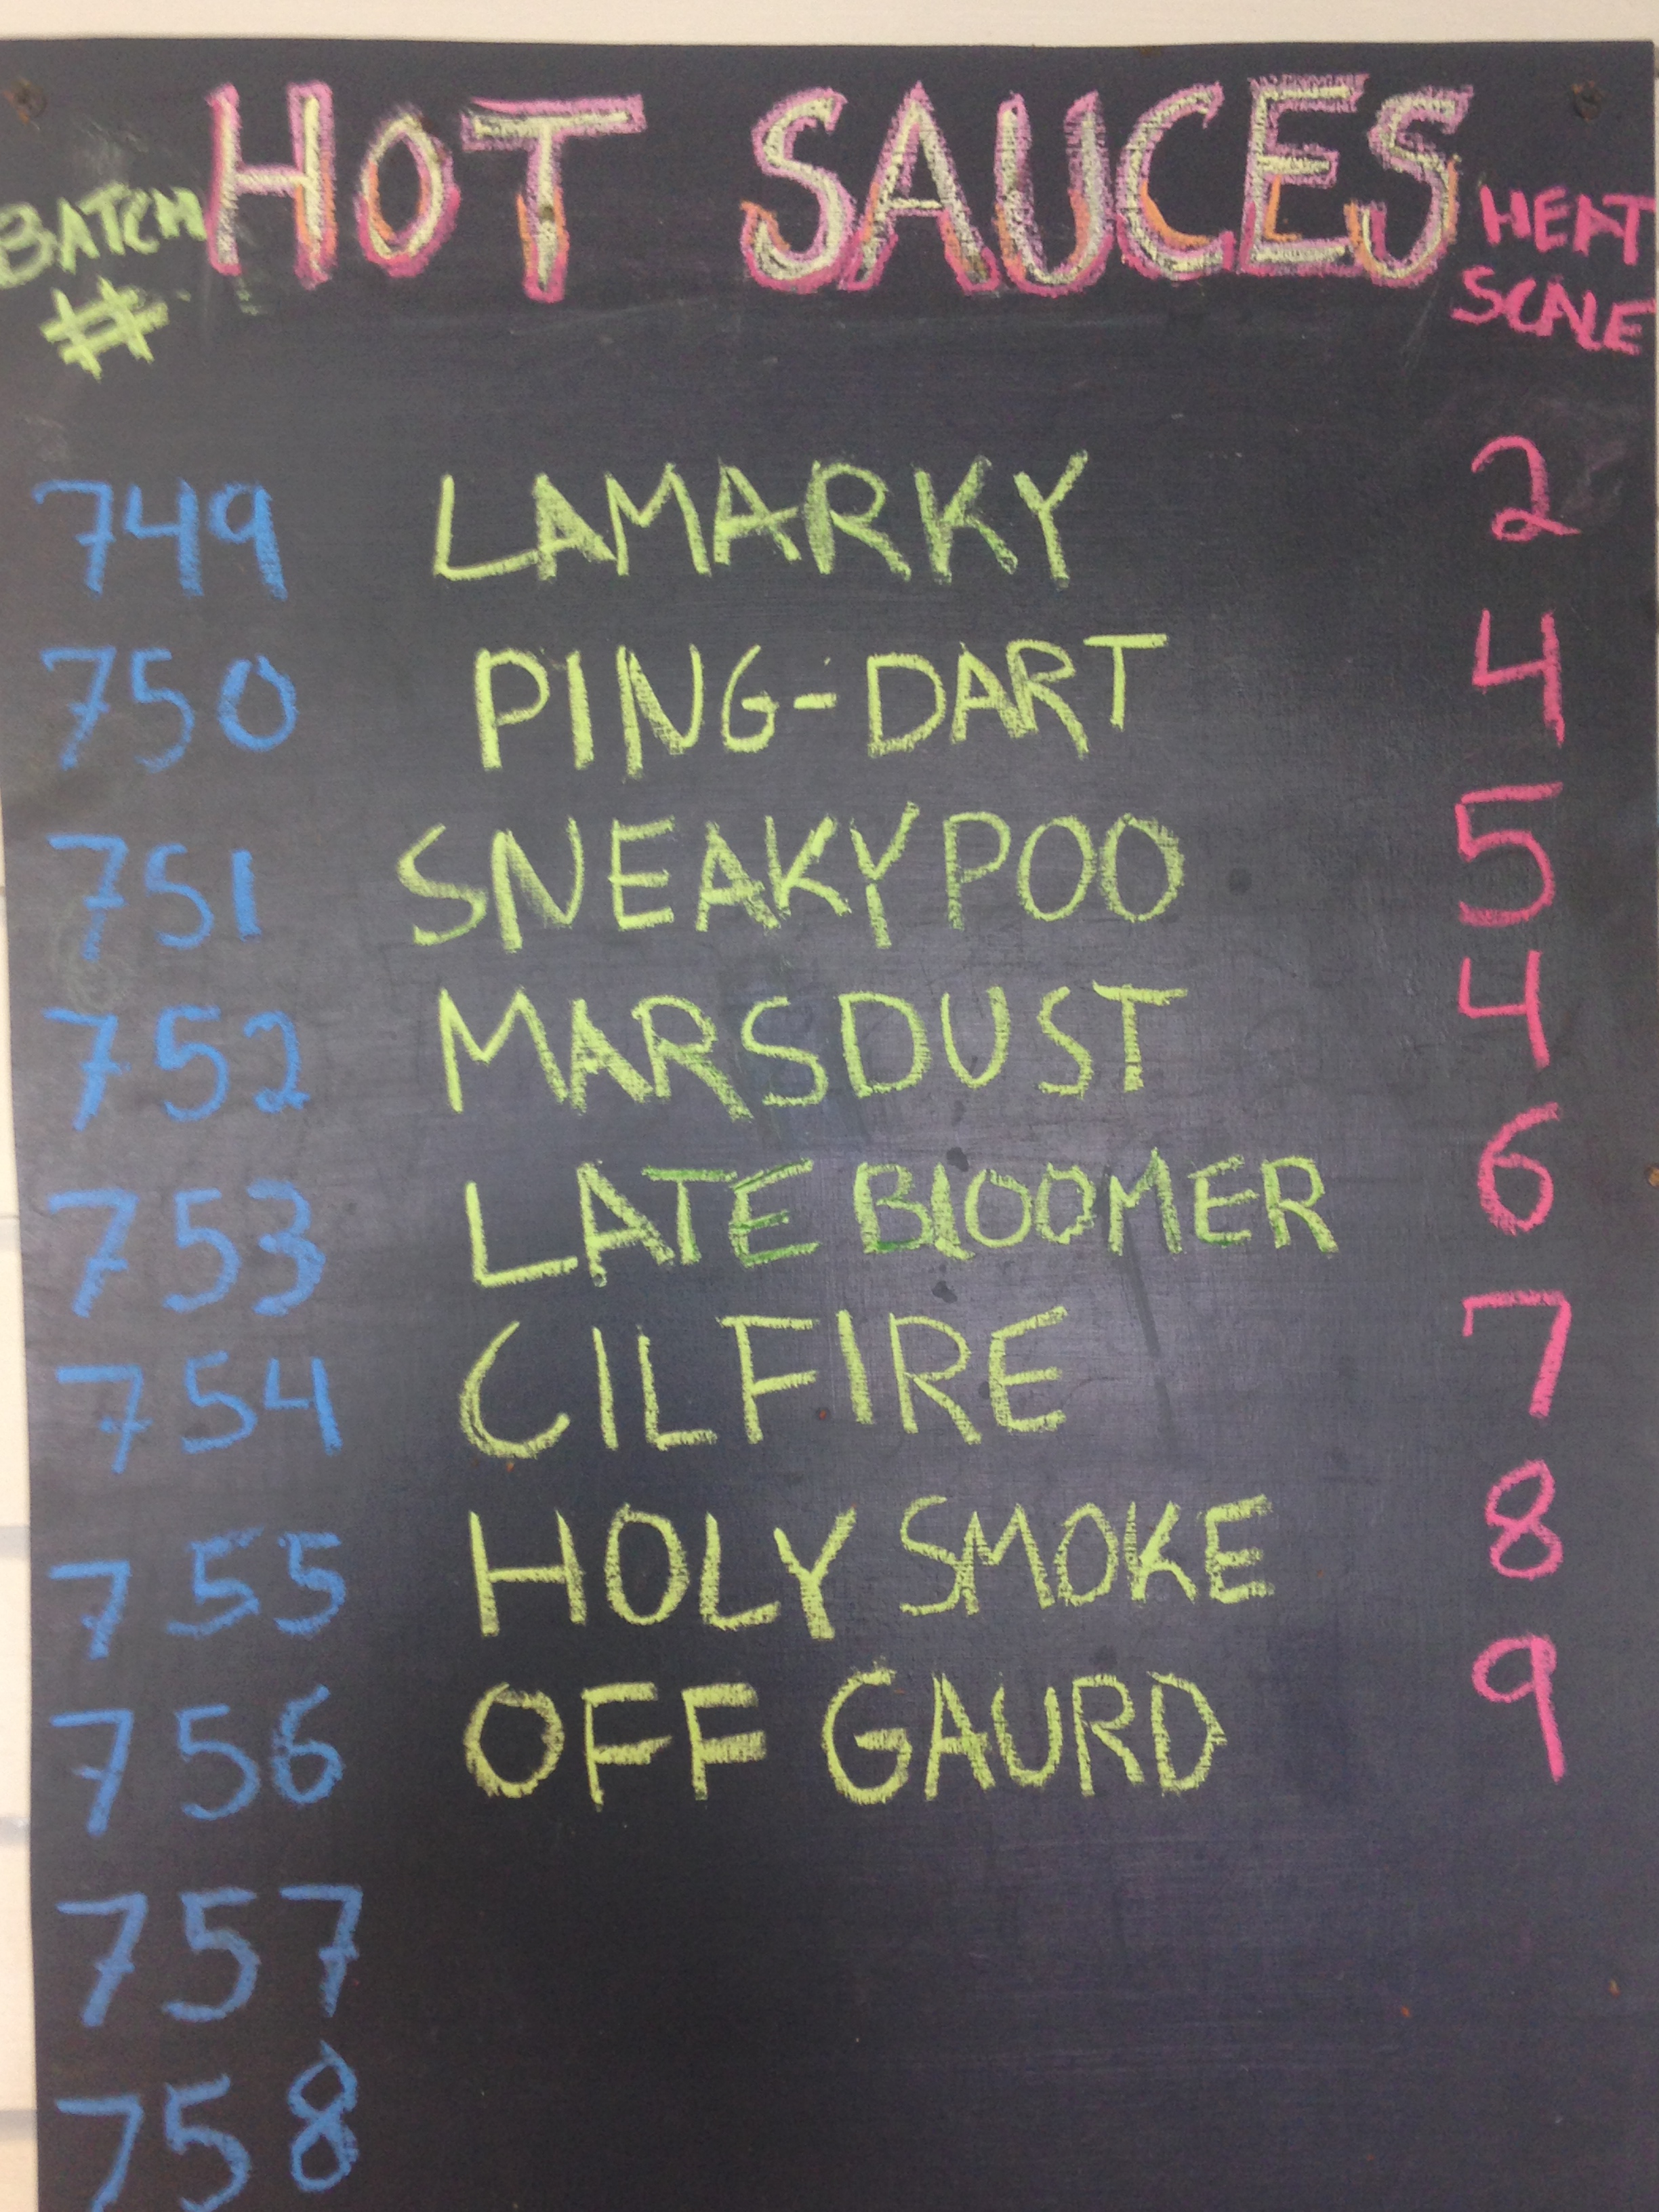 HOT SAUCES
BATCH #
HEAT SCALE
749 LAMARKY 2
750 PING-DART 4
751 SNEAKYPOO 5
752 MARSDUST 4
753 LATE BLOOMER 6
754 CILFIRE 7
755 HOLY SMOKE 8
756 OFF GAURD 9
757
758